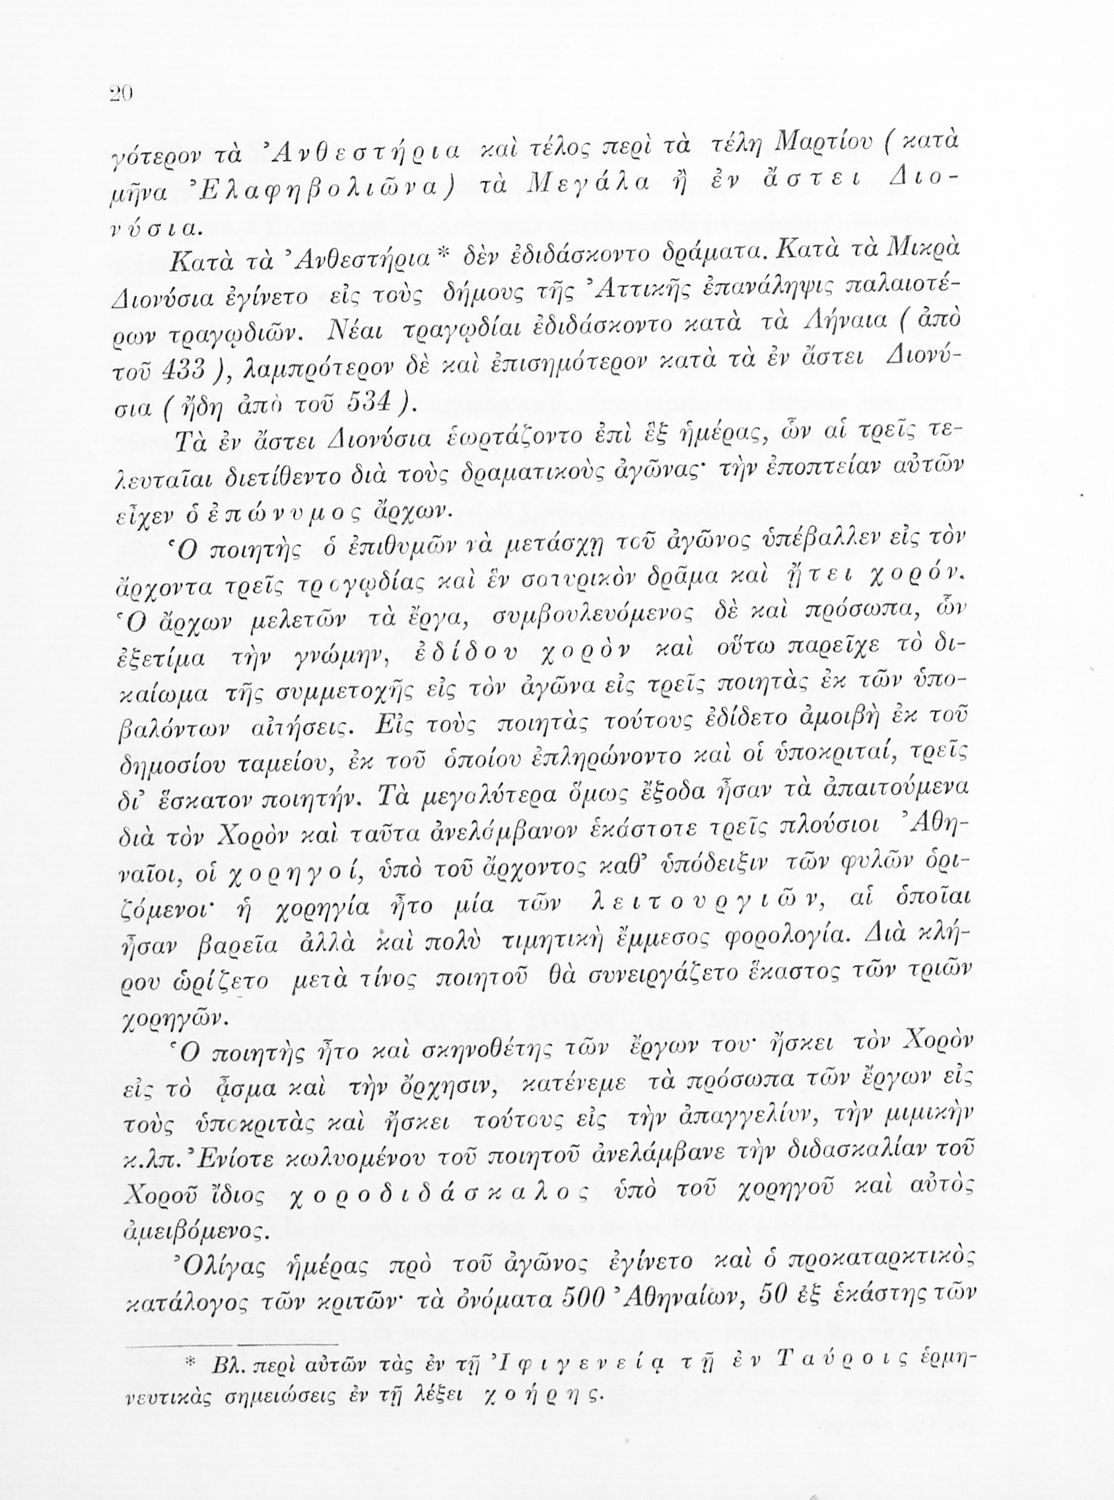 20
γότερον τὰ Ἀνθεστήρια καὶ τέλος περὶ τὰ τέλη Μαρτίου ( κατὰ
μῆνα Ἐλαφηβολιῶνα) τὰ Μεγάλα ἢ ἐν ἄστει Διο-
νύσια.
Κατὰ τὰ Ἀνθεστήρια* δὲν ἐδιδάσκοντο δράματα. Κατὰ τὰ Μικρὰ
Διονύσια ἐγίνετο εἰς τοὺς δήμους τῆς Ἀττικῆς ἐπανάληψις παλαιοτέ-
ρων τραγῳδιῶν. Νέαι τραγῳδίαι ἐδιδάσκοντο κατὰ τὰ Λήναια ( ἀπὸ
τοῦ 433 ), λαμπρότερον δὲ καὶ ἐπισημότερον κατὰ τὰ ἐν ἄστει Διονύ-
σια ( ἤδη ἀπὸ τοῦ 534 ).
Τὰ ἐν ἄστει Διονύσια ἑωρτάζοντο ἐπὶ ἓξ ἡμέρας, ὧν αἱ τρεῖς τε-
λευταῖαι διετίθεντο διὰ τοὺς δραματικοὺς ἀγῶνας· τὴν ἐποπτείαν αὐτῶν
εἶχεν ὁ ἐπώνυμος ἄρχων.
Ὁ ποιητὴς ὁ ἐπιθυμῶν νὰ μετάσχῃ τοῦ ἀγῶνος ὑπέβαλλεν εἰς τὸν
ἄρχοντα τρεῖς τραγῳδίας καὶ ἓν σατυρικὸν δρᾶμα καὶ ᾔτει χορόν.
Ὁ ἄρχων μελετῶν τὰ ἔργα, συμβουλευόμενος δὲ καὶ πρόσωπα, ὧν
ἐξετίμα τὴν γνώμην, ἐδίδου χορὸν καὶ οὕτω παρεῖχε τὸ δι-
καίωμα τῆς συμμετοχῆς εἰς τὸν ἀγῶνα εἰς τρεῖς ποιητὰς ἐκ τῶν ὑπο-
βαλόντων αἰτήσεις. Εἰς τοὺς ποιητὰς τούτους ἐδίδετο ἀμοιβὴ ἐκ τοῦ
δημοσίου ταμείου, ἐκ τοῦ ὁποίου ἐπληρώνοντο καὶ οἱ ὑποκριταί, τρεῖς
δι' ἕσκατον ποιητήν. Τὰ μεγαλύτερα ὅμως ἔξοδα ἦσαν τὰ ἀπαιτούμενα
διὰ τὸν Χορὸν καὶ ταῦτα ἀνελάμβανον ἑκάστοτε τρεῖς πλούσιοι Ἀθη-
ναῖοι, οἱ χορηγοί, ὑπὸ τοῦ ἄρχοντος καθ' ὑπόδειξιν τῶν φυλῶν ὁρι-
ζόμενοι· ἡ χορηγία ἦτο μία τῶν λειτουργιῶν, αἱ ὁποῖαι
ἦσαν βαρεῖα ἀλλὰ καὶ πολὺ τιμητικὴ ἔμμεσος φορολογία. Διὰ κλή-
ρου ὡρίζετο μετὰ τίνος ποιητοῦ θὰ συνειργάζετο ἕκαστος τῶν τριῶν
χορηγῶν.
Ὁ ποιητὴς ἦτο καὶ σκηνοθέτης τῶν ἔργων του· ἤσκει τὸν Χορὸν
εἰς τὸ ᾆσμα καὶ τὴν ὄρχησιν, κατένεμε τὰ πρόσωπα τῶν ἔργων εἰς
τοὺς ὑποκριτὰς καὶ ἤσκει τούτους εἰς τὴν ἀπαγγελίαν, τὴν μιμικὴν
κ.λπ. Ἐνίοτε κωλυομένου τοῦ ποιητοῦ ἀνελάμβανε τὴν διδασκαλίαν τοῦ
Χοροῦ ἴδιος χοροδιδάσκαλος ὑπὸ τοῦ χορηγοῦ καὶ αὐτὸς
ἀμειβόμενος.
Ὀλίγας ἡμέρας πρὸ τοῦ ἀγῶνος ἐγίνετο καὶ ὁ προκαταρκτικὸς
κατάλογος τῶν κριτῶν· τὰ ὀνόματα 500 Ἀθηναίων, 50 ἐξ ἑκάστης τῶν
* Βλ. περὶ αὐτῶν τὰς ἐν τῇ Ἰφιγενείᾳ τῇ ἐν Ταύροις ἑρμη-
νευτικὰς σημειώσεις ἐν τῇ λέξει χοήρης.